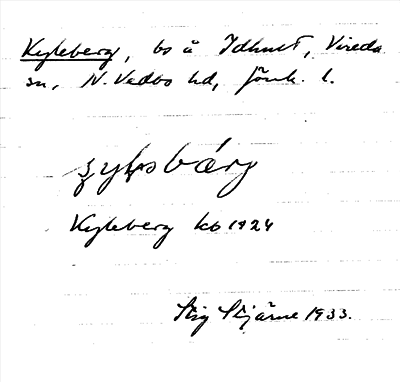 Kyleberg, bs å Idhult, Vireda
sn, N. Vedbo hd, Jönk. l.
Kyleberg kb 1924
Stig Stjärne 1933.